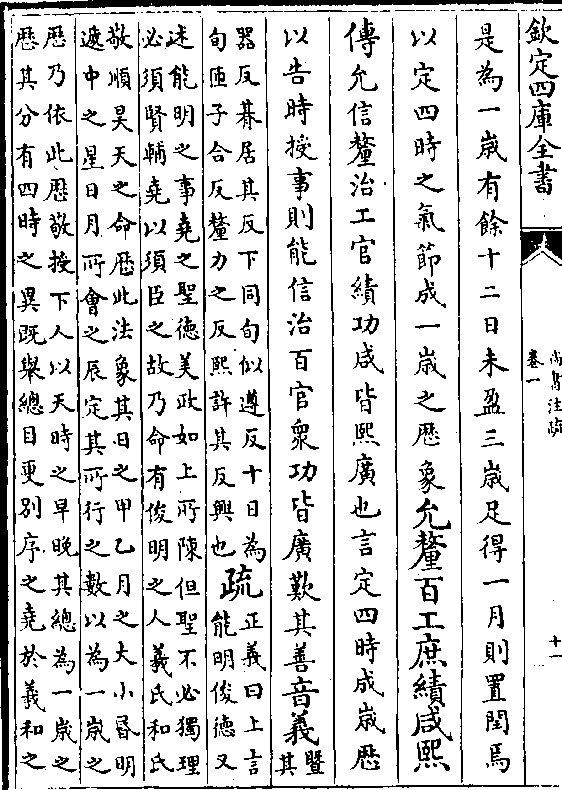 欽定四庫全書
尚書注疏
卷一
十一
是為一歲有餘十二日未盈三歲足得一月則置閏焉
以定四時之氣節成一歲之厯象允釐百工庶績咸熙
傳允信釐治工官績功咸皆熙廣也言定四時成歲厯
以告時授事則能信治百官衆功皆廣歎其善音義暨其
器反朞居其反下同旬似遵反十日為
旬匝子合反釐力之反熙許其反興也疏正義曰上言
能明俊德又
述能明之事堯之聖德美政如上所陳但聖不必獨理
必須賢輔堯以須臣之故乃命有俊明之人羲氏和氏
敬順昊天之命厯此法象其日之甲乙月之大小昬明
遞中之星日月所會之辰定其所行之數以為一歲之
厯乃依此厯敬授下人以天時之早晚其總為一歲之
厯其分有四時之異既舉總目更别序之堯於羲和之